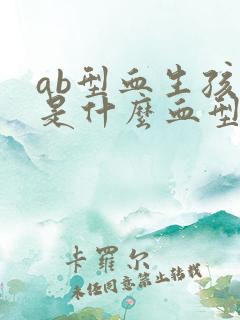 ab型血生孩
是什麼血型
卡羅尔
未经同意禁止转载